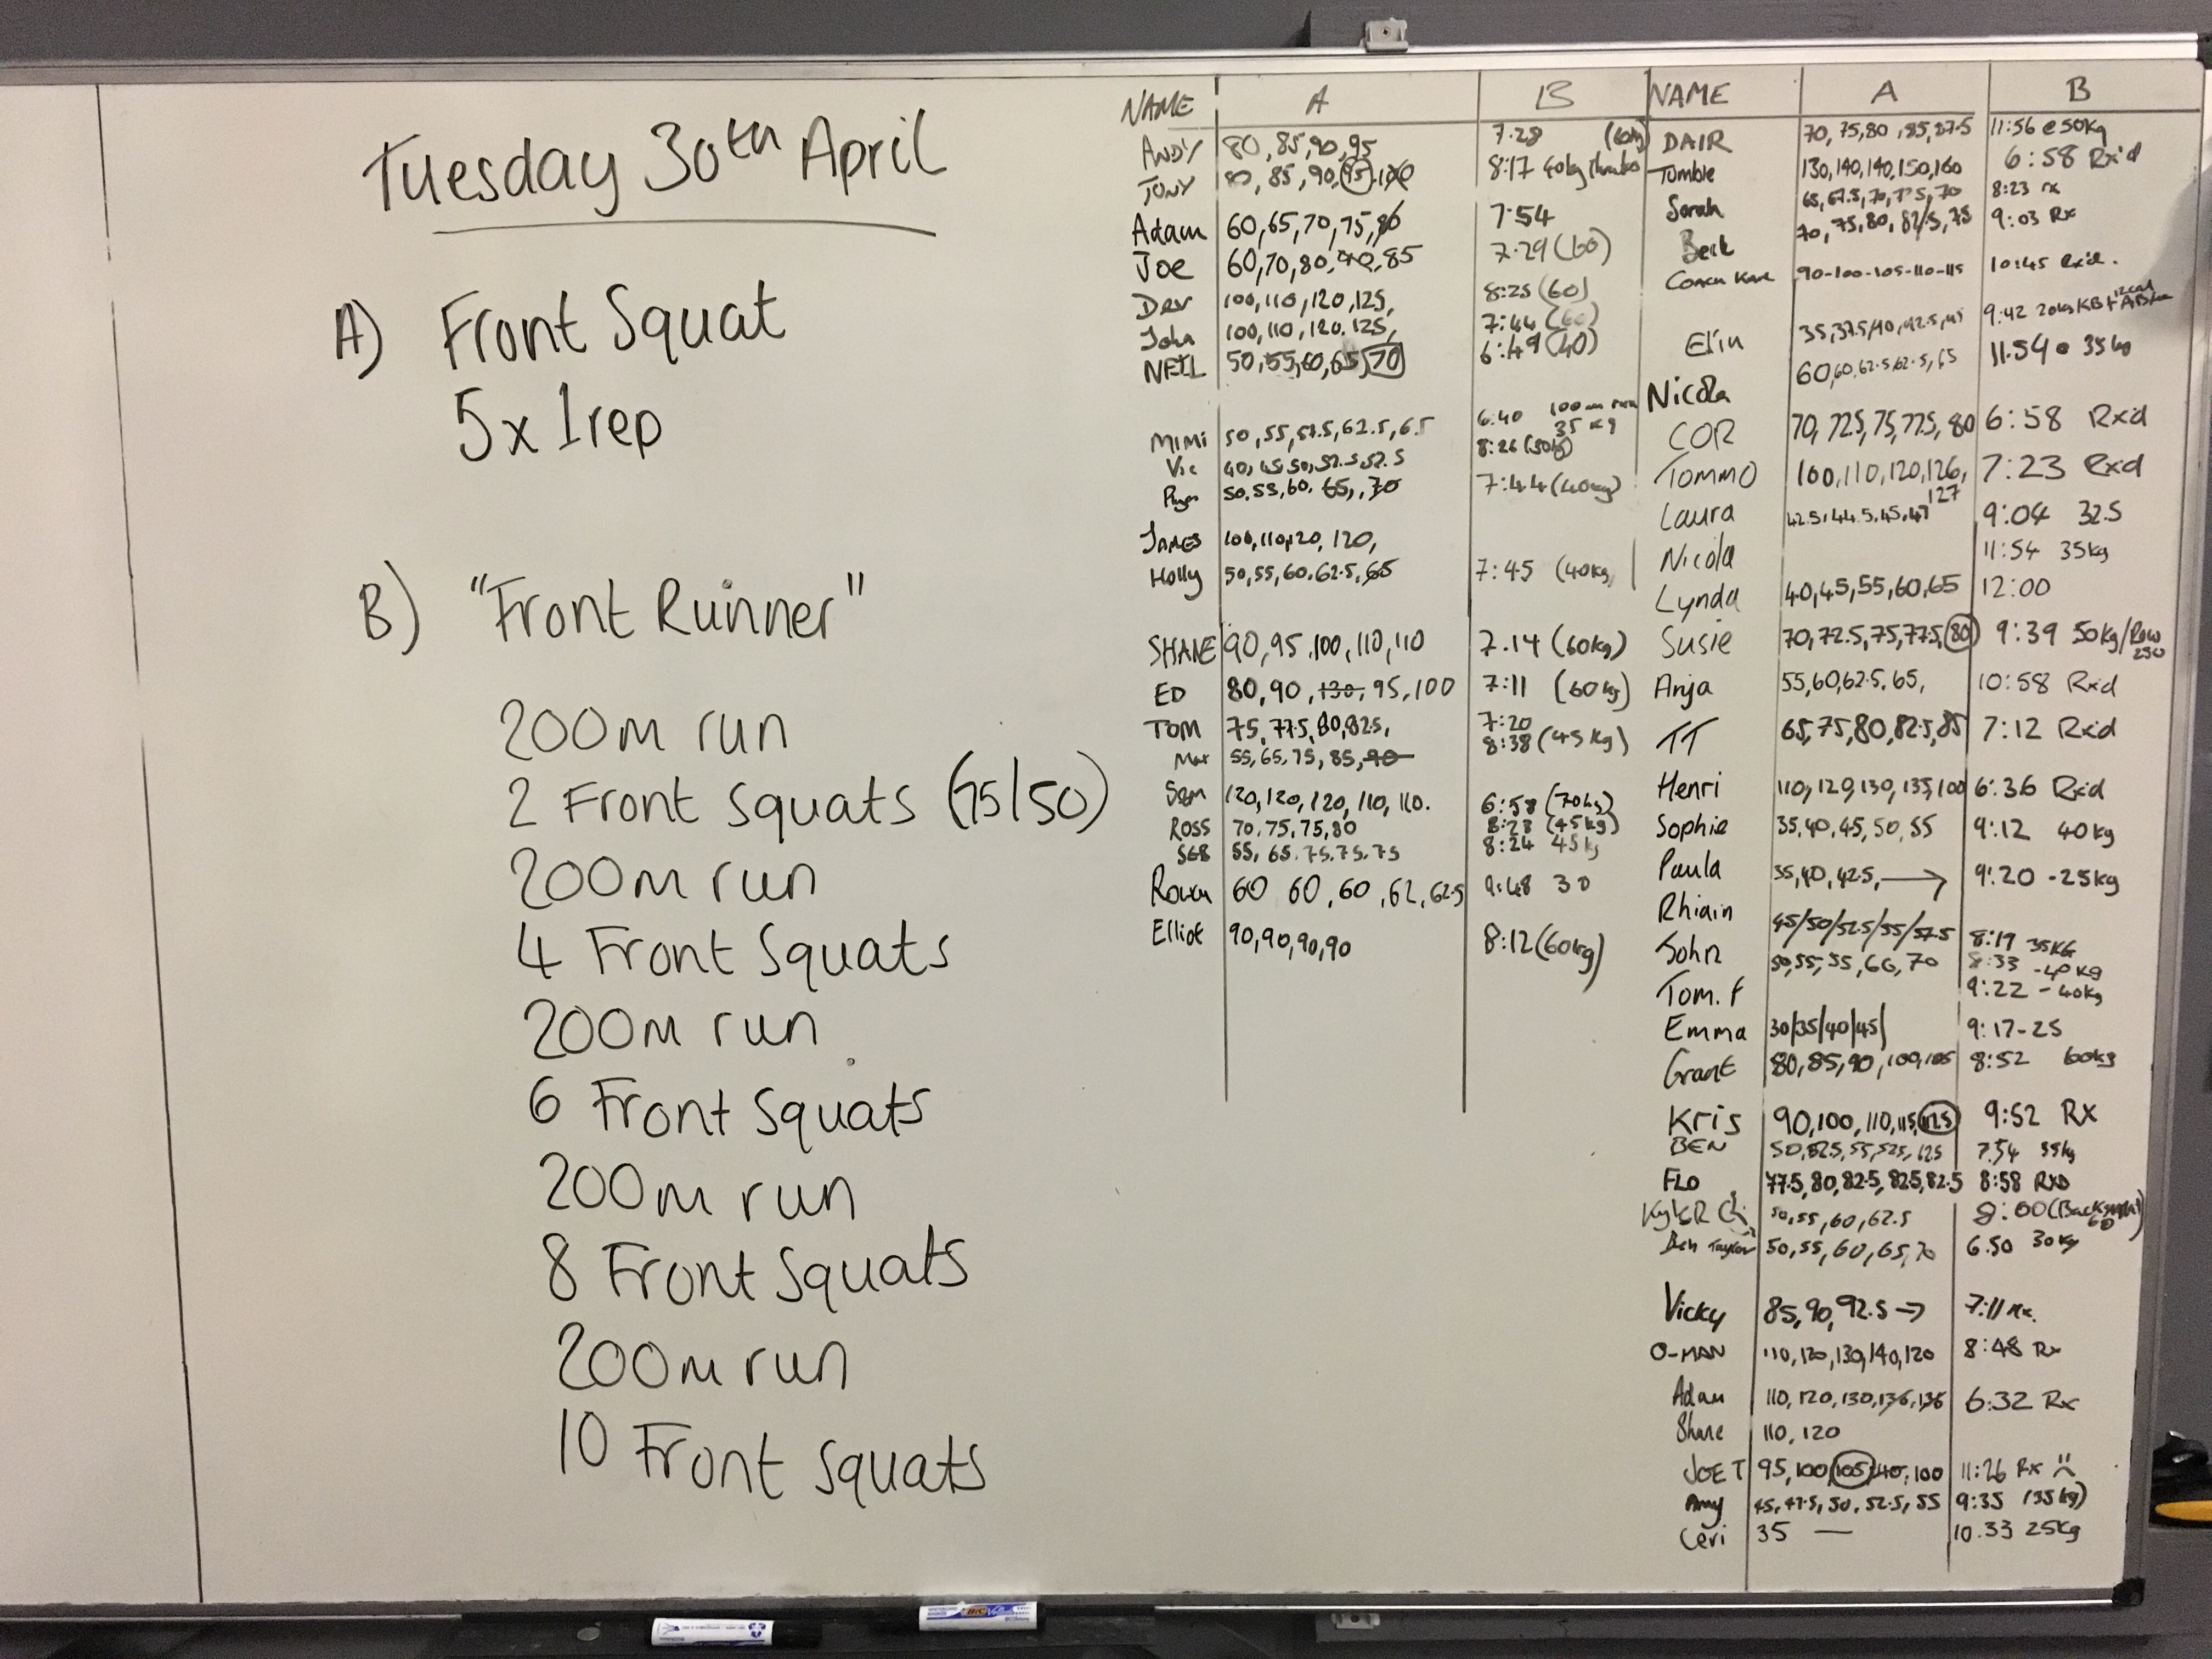 Tuesday 30th April
A) Front Squat
5x 1rep
B) "Front Runner"
200m run
2 Front Squats (75/50)
200m run
4 Front Squats
200m run
6 Front Squats
200m run
8 Front Squats
200m run
10 Front Squats
NAME A B
ANDY 80, 85, 90, 95 7.28 (60kg)
TONY 85, 90, 95, 8:17 40kg
Adam 60, 65, 70, 75, 80 7:54
Joe 60, 70, 80, 90, 85 7.29 (60)
Dev 100, 110, 120, 125, 8:25 (60)
John 100, 110, 120, 125, 7:44 (60)
NEIL 50, 55, 60, 65, 70 6:49 (40)
MIMI 50, 55, 57.5, 62.5, 65 6:40 100m run 35 kg
Vic 40, 45, 50, 52.5, 52.5 8:26
50, 55, 60, 65, 70 7:44 (40kg)
JAMES 100, 110, 120, 120,
Holly 50, 55, 60, 62.5, 65 7:45 (40kg)
SHANE 90, 95, 100, 110, 110 7.14 (60kg)
ED 80, 90, 130, 95, 100 7:11 (60kg)
TOM 75, 77.5, 80, 82.5, 7:20
Max 55, 65, 75, 85, 90 8:38 (45kg)
Sam 120, 120, 120, 110, 110. 6:58 (70kg)
ROSS 70, 75, 75, 80 8:23 (45kg)
SEB 55, 65, 75, 75, 75 8:24 45kg
Rowan 60 60, 60, 62, 62.5 9:48 30
Elliot 90, 90, 90, 90 8:12 (60kg)
NAME A B
DAIR 70, 75, 80, 85, 87.5 11:56 @ 50kg
Tombie 130, 140, 140, 150, 160 6:58 Rx'd
Sarah 65, 67.5, 70, 72.5, 70 8:23 rx
Beck 70, 75, 80, 82.5, 75 9:03 Rx
90-100-105-110-115 10:45 Rx'd.
Elin 35, 37.5, 40, 42.5, 45 9:42 20kg KB +
Nicola 60, 60, 62.5, 62.5, 65 11.54 @ 35kg
COR 70, 72.5, 75, 77.5, 80 6:58 Rxd
TOMMO 100, 110, 120, 126, 127 7:23 Rxd
Laura 42.5, 44.5, 45, 47 9:04 32.5
Nicola 11:54 35kg
Lynda 40, 45, 55, 60, 65 12:00
Susie 70, 72.5, 75, 77.5, 80 9:39 50kg/Row 250
Anja 55, 60, 62.5, 65, 10:58 Rxd
TT 65, 75, 80, 82.5, 85 7:12 Rxd
Henri 110, 120, 130, 135, 100 6:36 Rxd
Sophie 35, 40, 45, 50, 55 9:12 40kg
Paula 35, 40, 42.5, → 9:20 -25kg
Rhiain 45/50/52.5/55/57.5 8:19 35KG
John 50, 55, 55, 60, 70 8:33 -40kg
Tom.f 9:22 - 40kg
Emma 30/35/40/45/ 9:17-25
Grant 80, 85, 90, 100, 105 8:52 60kg
Kris 90, 100, 110, 115, 125 9:52 RX
BEN 50, 52.5, 55, 57.5, 62.5 7.54 35kg
FLO 77.5, 80, 82.5, 82.5, 82.5 8:58 RXD
50, 55, 60, 62.5 8:00 (Back squat) 60
Ben Taylor 50, 55, 60, 65, 70 6.50 30kg
Vicky 85, 90, 92.5 → 7:11 rx.
O-MAN 110, 120, 130, 140, 120 8:48 Rx
Adam 110, 120, 130, 136, 136 6:32 Rx
Shane 110, 120
JOE T 95, 100, 105, 100 11:26 Rx
Amy 45, 47.5, 50, 52.5, 55 9:35 (35kg)
Ceri 35 — 10.33 25kg
BIC